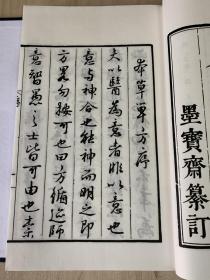 墨寶齋纂訂
本草單方序
夫以醫為意者非以意也
意與神合也能神而明之即
方畧勿按可也曰方循迹師
意智愚之士皆可由也